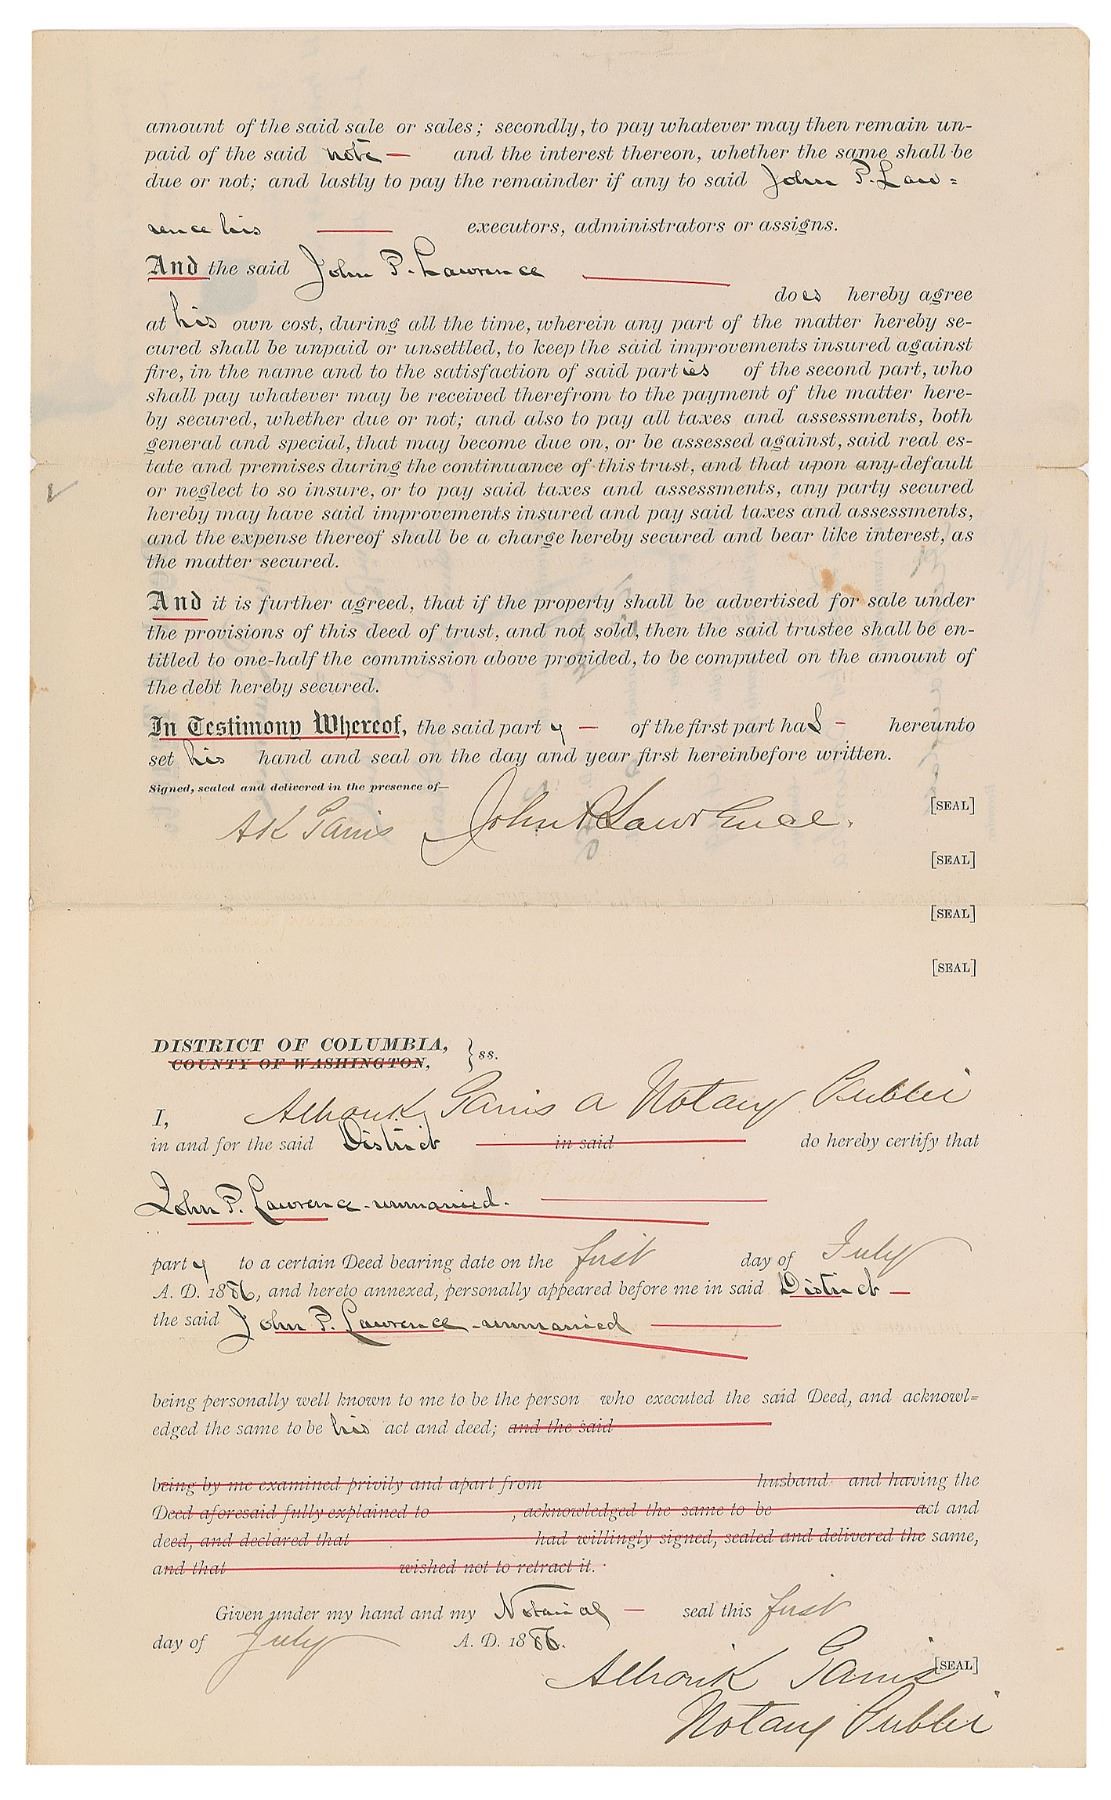 amount of the said sale or sales; secondly, to pay whatever may then remain un-
paid of the said note — and the interest thereon, whether the same shall be
due or not; and lastly to pay the remainder if any to said John P. Law=
rence his — executors, administrators or assigns.
And the said John P. Lawrence —
does hereby agree
at his own cost, during all the time, wherein any part of the matter hereby se-
cured shall be unpaid or unsettled, to keep the said improvements insured against
fire, in the name and to the satisfaction of said parties of the second part, who
shall pay whatever may be received therefrom to the payment of the matter here-
by secured, whether due or not; and also to pay all taxes and assessments, both
general and special, that may become due on, or be assessed against, said real es-
tate and premises during the continuance of this trust, and that upon any default
or neglect to so insure, or to pay said taxes and assessments, any party secured
hereby may have said improvements insured and pay said taxes and assessments,
and the expense thereof shall be a charge hereby secured and bear like interest, as
the matter secured.
And it is further agreed, that if the property shall be advertised for sale under
the provisions of this deed of trust, and not sold, then the said trustee shall be en-
titled to one-half the commission above provided, to be computed on the amount of
the debt hereby secured.
In Testimony Whereof, the said party — of the first part has — hereunto
set his hand and seal on the day and year first hereinbefore written.
Signed, sealed and delivered in the presence of—
John P Lawrence. [SEAL]
[SEAL]
[SEAL]
[SEAL]
DISTRICT OF COLUMBIA,
COUNTY OF WASHINGTON, } ss.
I, a Notary Public
in and for the said District in said do hereby certify that
John P. Lawrence - unmarried.
party to a certain Deed bearing date on the first day of July
A. D. 1886, and hereto annexed, personally appeared before me in said District —
the said John P. Lawrence - unmarried
being personally well known to me to be the person who executed the said Deed, and acknowl=
edged the same to be his act and deed; and the said
being by me examined privily and apart from husband and having the
Deed aforesaid fully explained to , acknowledged the same to be act and
deed, and declared that had willingly signed, sealed and delivered the same,
and that wished not to retract it.
Given under my hand and my Notarial — seal this first
day of July A. D. 1886.
[SEAL]
Notary Public